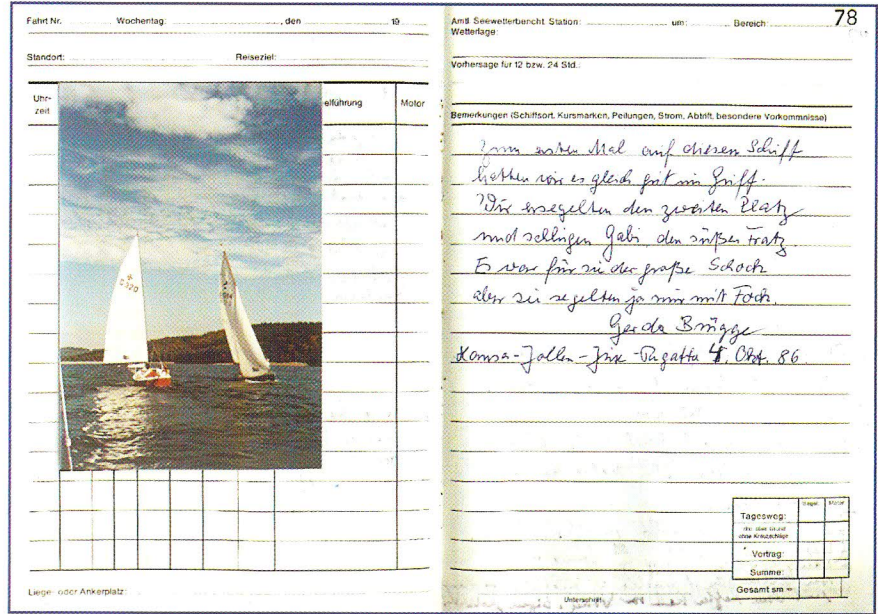 Fahrt Nr. Wochentag: , den 19
Standort: Reiseziel:
Uhr-
zeit
elführung
Motor
Liege- oder Ankerplatz:
78
Amtl. Seewetterbericht Station: um: Bereich:
Wetterlage:
Vorhersage für 12 bzw. 24 Std.:
Bemerkungen (Schiffsort, Kursmarken, Peilungen, Strom, Abtrift, besondere Vorkommnisse)
Zum ersten Mal auf diesem Schiff
hatten wir es gleich gut im Griff.
Wir ersegelten den zweiten Platz
und schlugen Gabi, den süßen Fratz
Es war für sie der große Schock
aber sie segelten ja nur mit Fock.
Gerda Brügge
Hansa-Jollen-Regatta 4. Okt. 86
Tagesweg:
Segel Motor
sm über Grund
ohne Kreuzschläge
Vortrag:
Summe:
Gesamt sm
Unterschrift